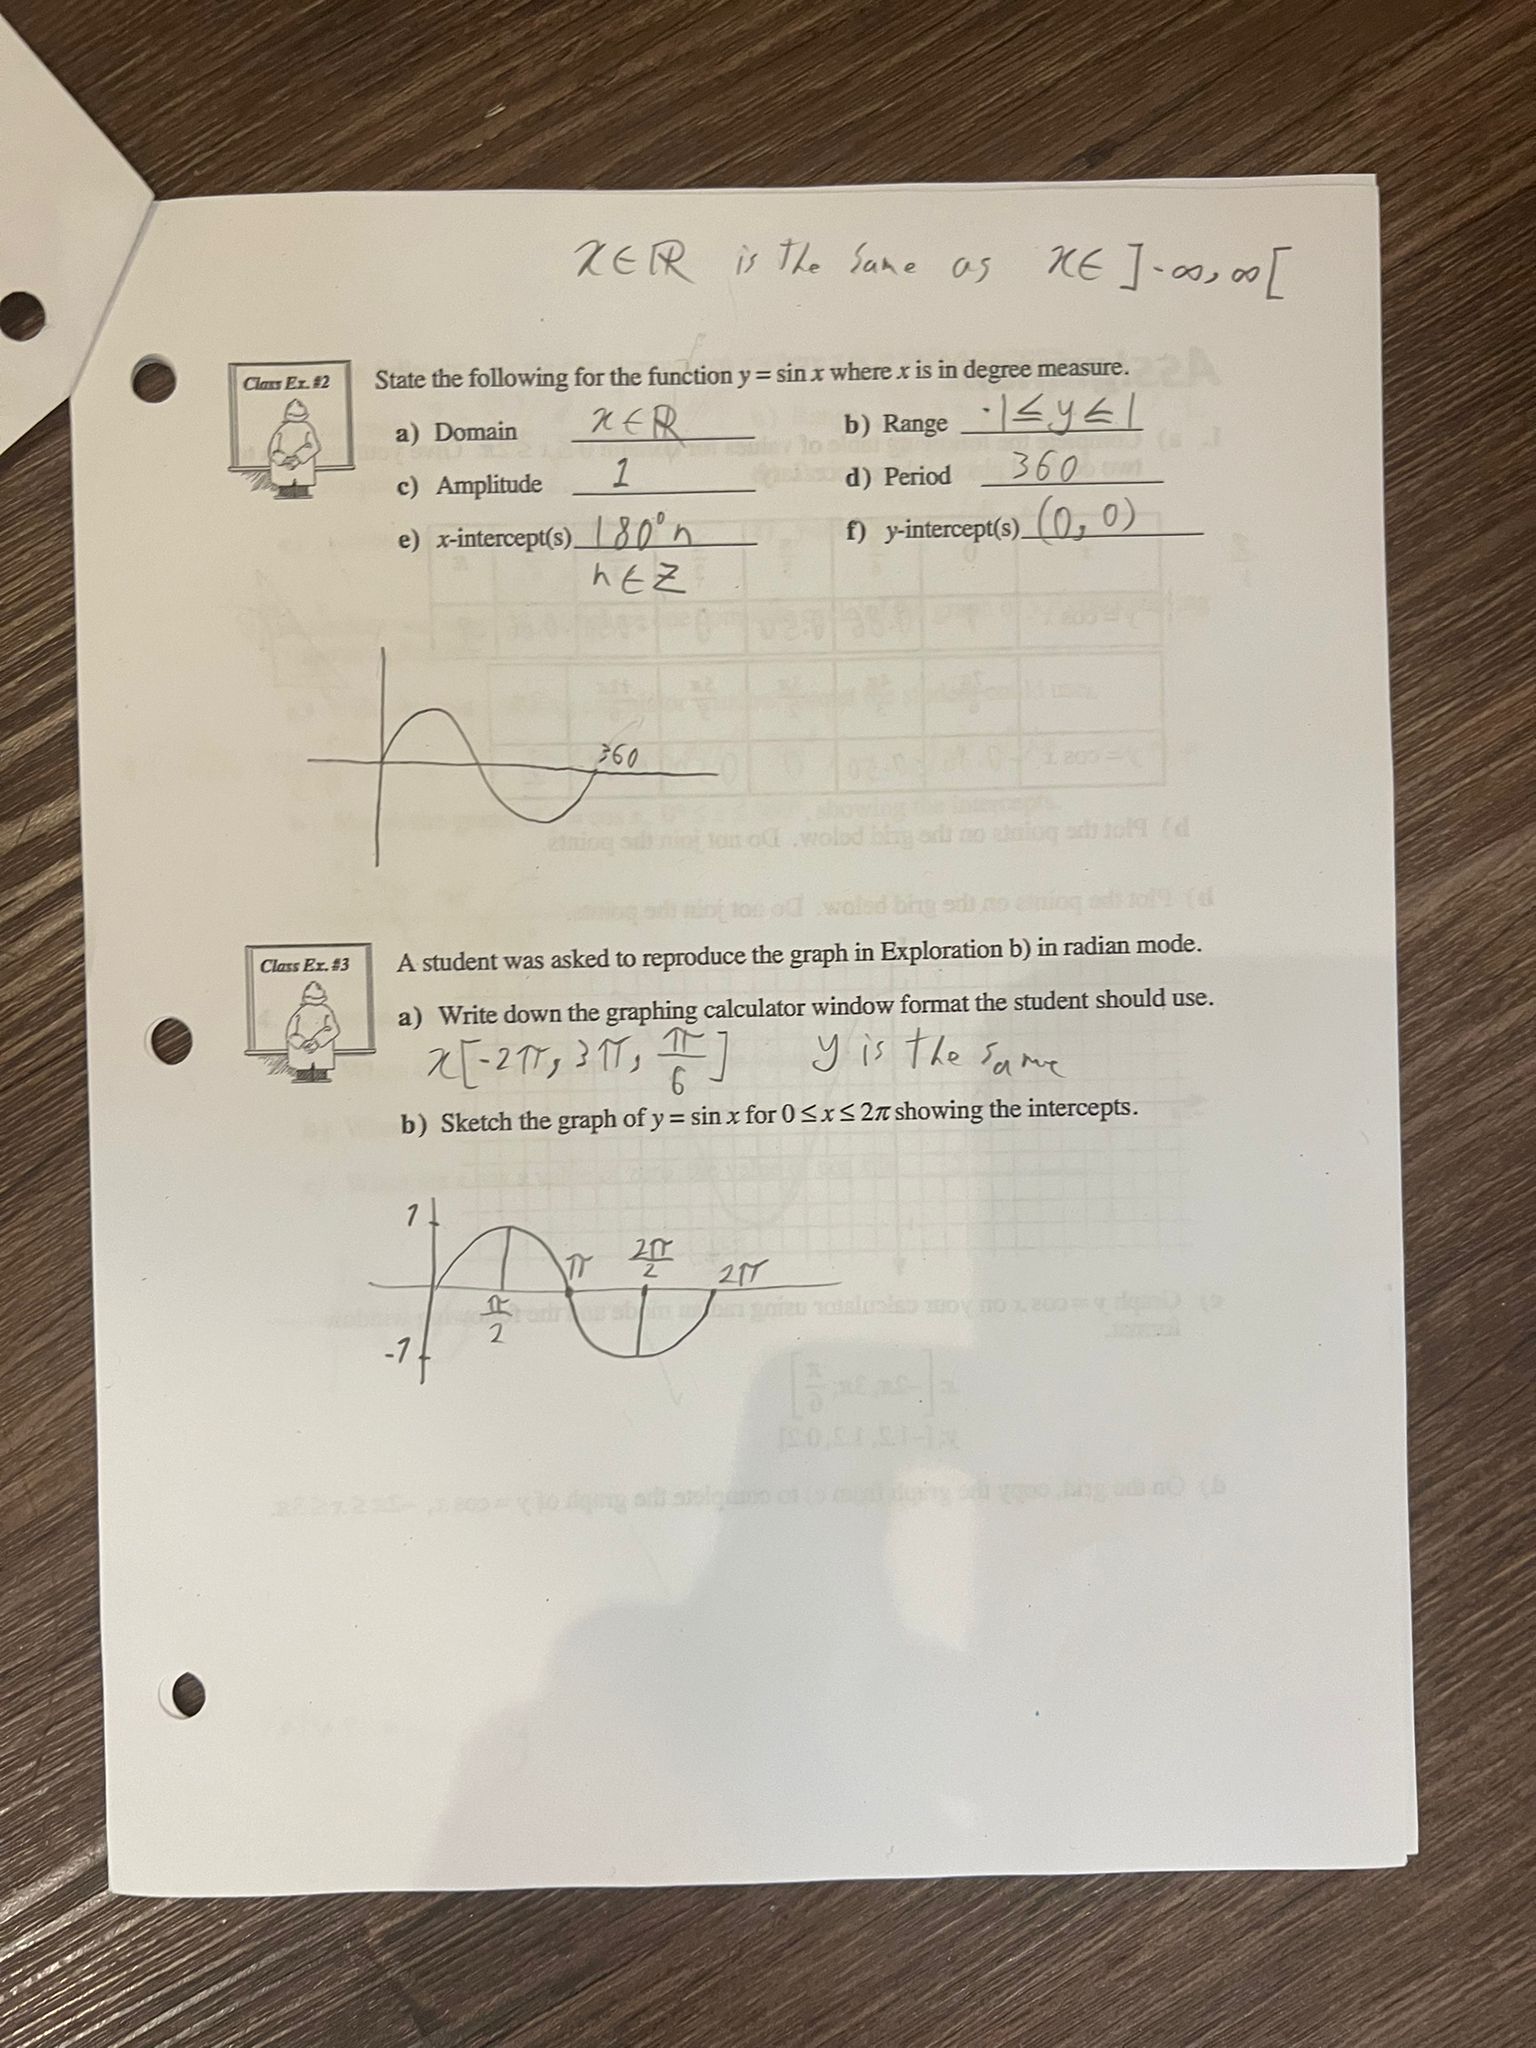 x∈ℝ is the same as x∈ ]-∞, ∞[
Class Ex. #2
State the following for the function y = sin x where x is in degree measure.
a) Domain x∈ℝ b) Range -1≤y≤1
c) Amplitude 1 d) Period 360
e) x-intercept(s) 180°n f) y-intercept(s) (0, 0)
n∈Z
360
Class Ex. #3
A student was asked to reproduce the graph in Exploration b) in radian mode.
a) Write down the graphing calculator window format the student should use.
x[-2π, 3π, π/6] y is the same
b) Sketch the graph of y = sin x for 0 ≤ x ≤ 2π showing the intercepts.
1
π 2π/2 2π
π/2
-1